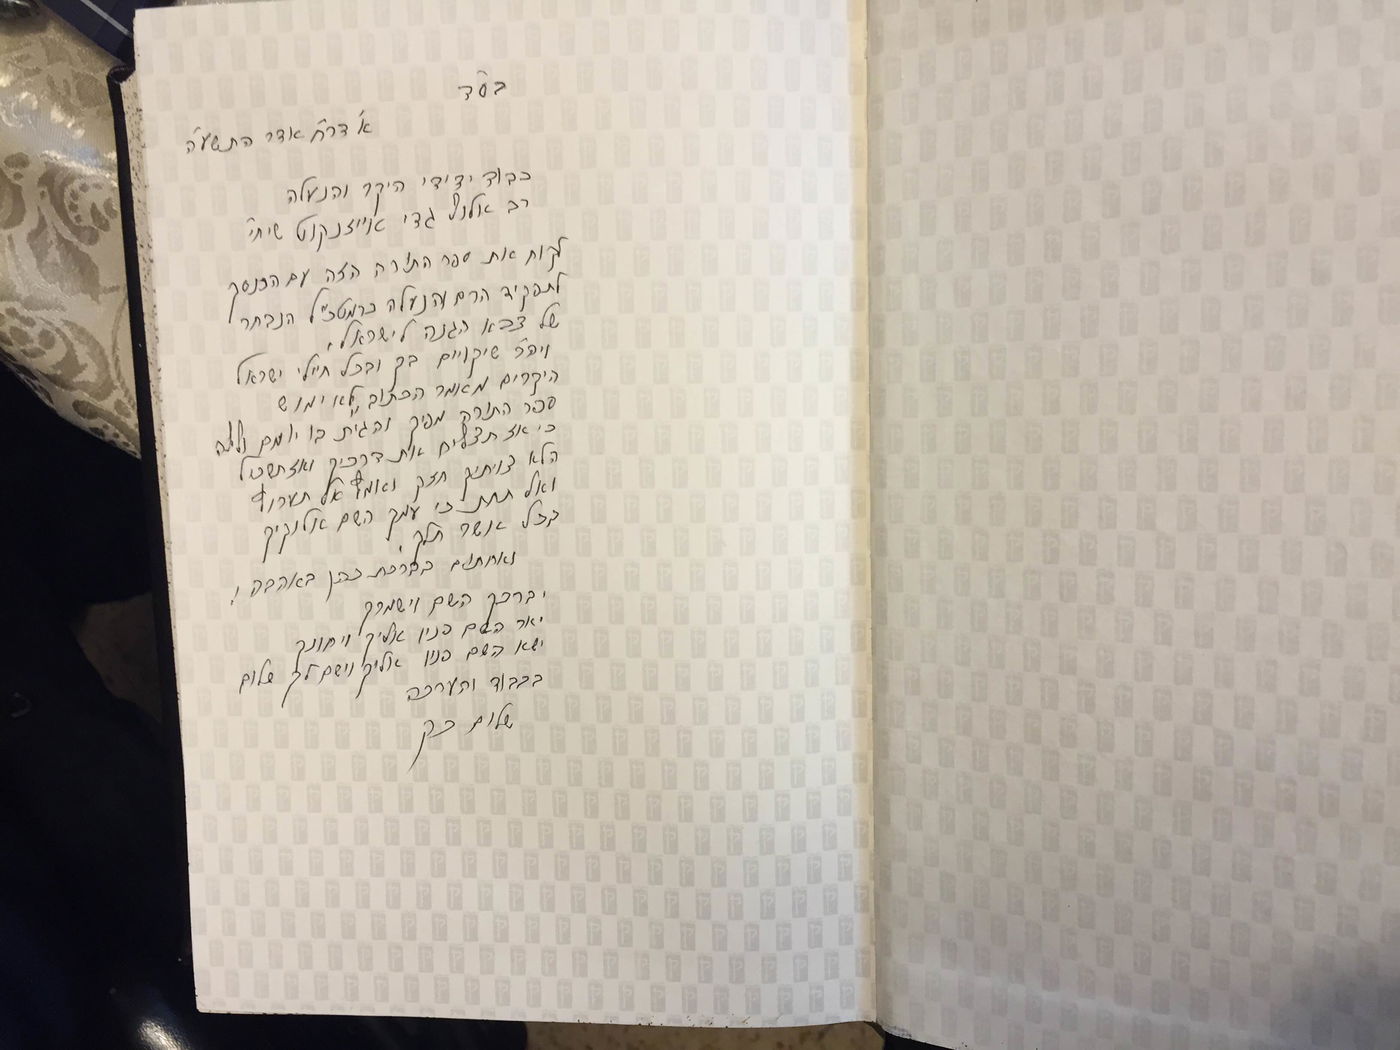 בס״ד
א׳ דר״ח אדר התשע״ה
כבוד ידידי היקר והנעלה
רב אלוף גדי אייזנקוט שיחי׳
קח את ספר התורה הזה עם הכנסך
לתפקיד הרם והנעלה כרמטכ״ל הנבחר
של צבא הגנה לישראל,
ויה״ר שיקויים בך ובכל חיילי ישראל
היקרים מאמר הכתוב "לא ימוש
ספר התורה מפיך והגית בו יומם ולילה
כי אז תצליח את דרכיך ואז תשכיל
הלא צויתיך חזק ואמץ אל תערוץ
ואל תחת כי עמך השם אלוקיך
בכל אשר תלך,
ואחתום בברכת כהן באהבה,
יברכך השם וישמרך
יאר השם פניו אליך ויחונך
ישא השם פניו אליך וישם לך שלום
בכבוד והערכה
שלום כץ